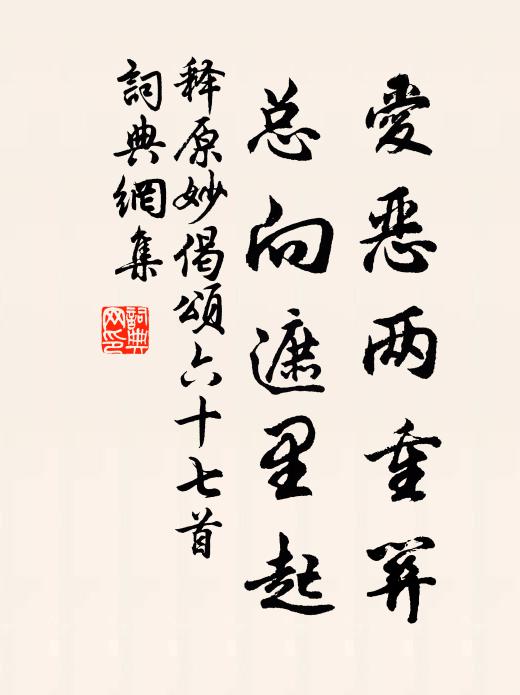 愛恶两重関
总向遮里起
释原妙偈頌六十七首
詞典網集
詞典网印